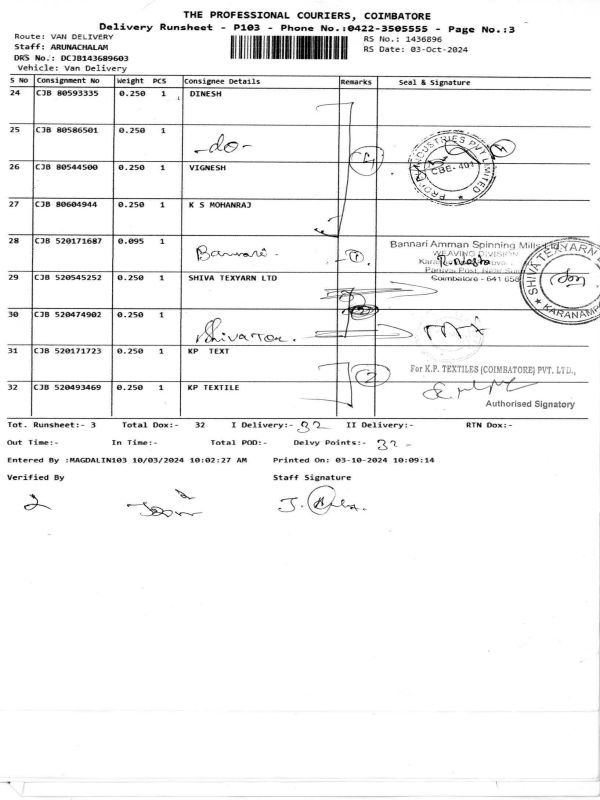 THE PROFESSIONAL COURIERS, COIMBATORE
Delivery Runsheet - P103 - Phone No.:0422-3505555 - Page No.:3
Route: VAN DELIVERY
RS No.: 1436896
Staff: ARUNACHALAM
RS Date: 03-Oct-2024
DRS No.: DCJB143689603
Vehicle: Van Delivery
S No Consignment No Weight PCS Consignee Details Remarks Seal & Signature
24 CJB 80593335 0.250 1 DINESH
25 CJB 80586501 0.250 1 -do-
26 CJB 80544500 0.250 1 VIGNESH
27 CJB 80604944 0.250 1 K S MOHANRAJ
4
INDUSTRIES PVT LIMITED
CBE-401
28 CJB 520171687 0.095 1 Bannari - 1.
Bannari Amman Spinning Mills Ltd
WEAVING DIVISION
Coimbatore - 641 658
29 CJB 520545252 0.250 1 SHIVA TEXYARN LTD
SHIVA TEXYARN
KARANAMP
30 CJB 520474902 0.250 1
31 CJB 520171723 0.250 1 KP TEXT
2
For K.P. TEXTILES (COIMBATORE) PVT. LTD.,
32 CJB 520493469 0.250 1 KP TEXTILE
Authorised Signatory
Tot. Runsheet:- 3 Total Dox:- 32 I Delivery:- 32 II Delivery:- RTN Dox:-
Out Time:- In Time:- Total POD:- Delvy Points:- 32 -
Entered By :MAGDALIN103 10/03/2024 10:02:27 AM Printed On: 03-10-2024 10:09:14
Verified By Staff Signature